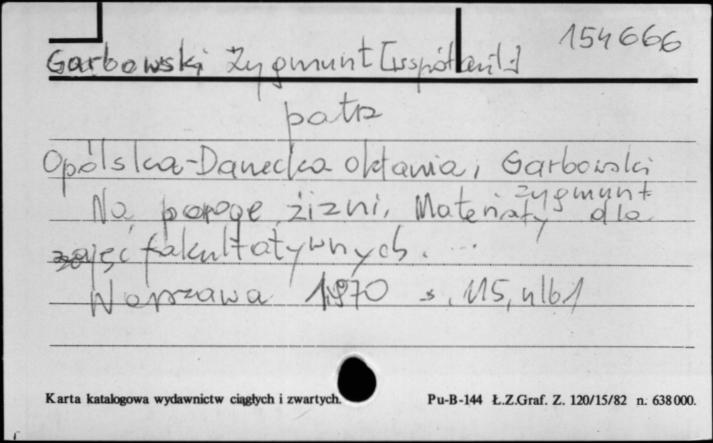 154666
Garbowski Zygmunt [współaut.]
patrz
Opolska-Danecka Oktawia, Garbowski
Zygmunt
Na poroge żizni. Materiały dla
zajęć fakultatywnych. ...
Warszawa 1970 s. 115, nlb 1
Karta katalogowa wydawnictw ciągłych i zwartych.
Pu-B-144 Ł.Z.Graf. Z. 120/15/82 n. 638000.